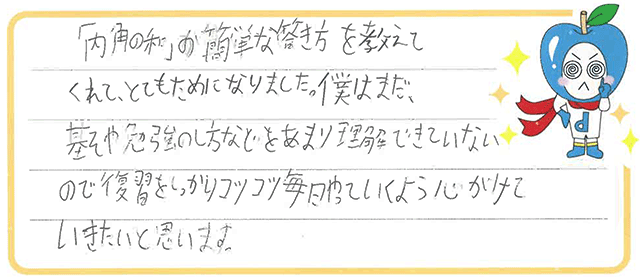 「内角の和」の簡単な答き方を教えて
くれて、とてもためになりました。僕はまだ、
基そや勉強のし方などをあまり理解できていない
ので復習をしっかりコツコツ毎日やっていくよう心がけて
いきたいと思います。
d